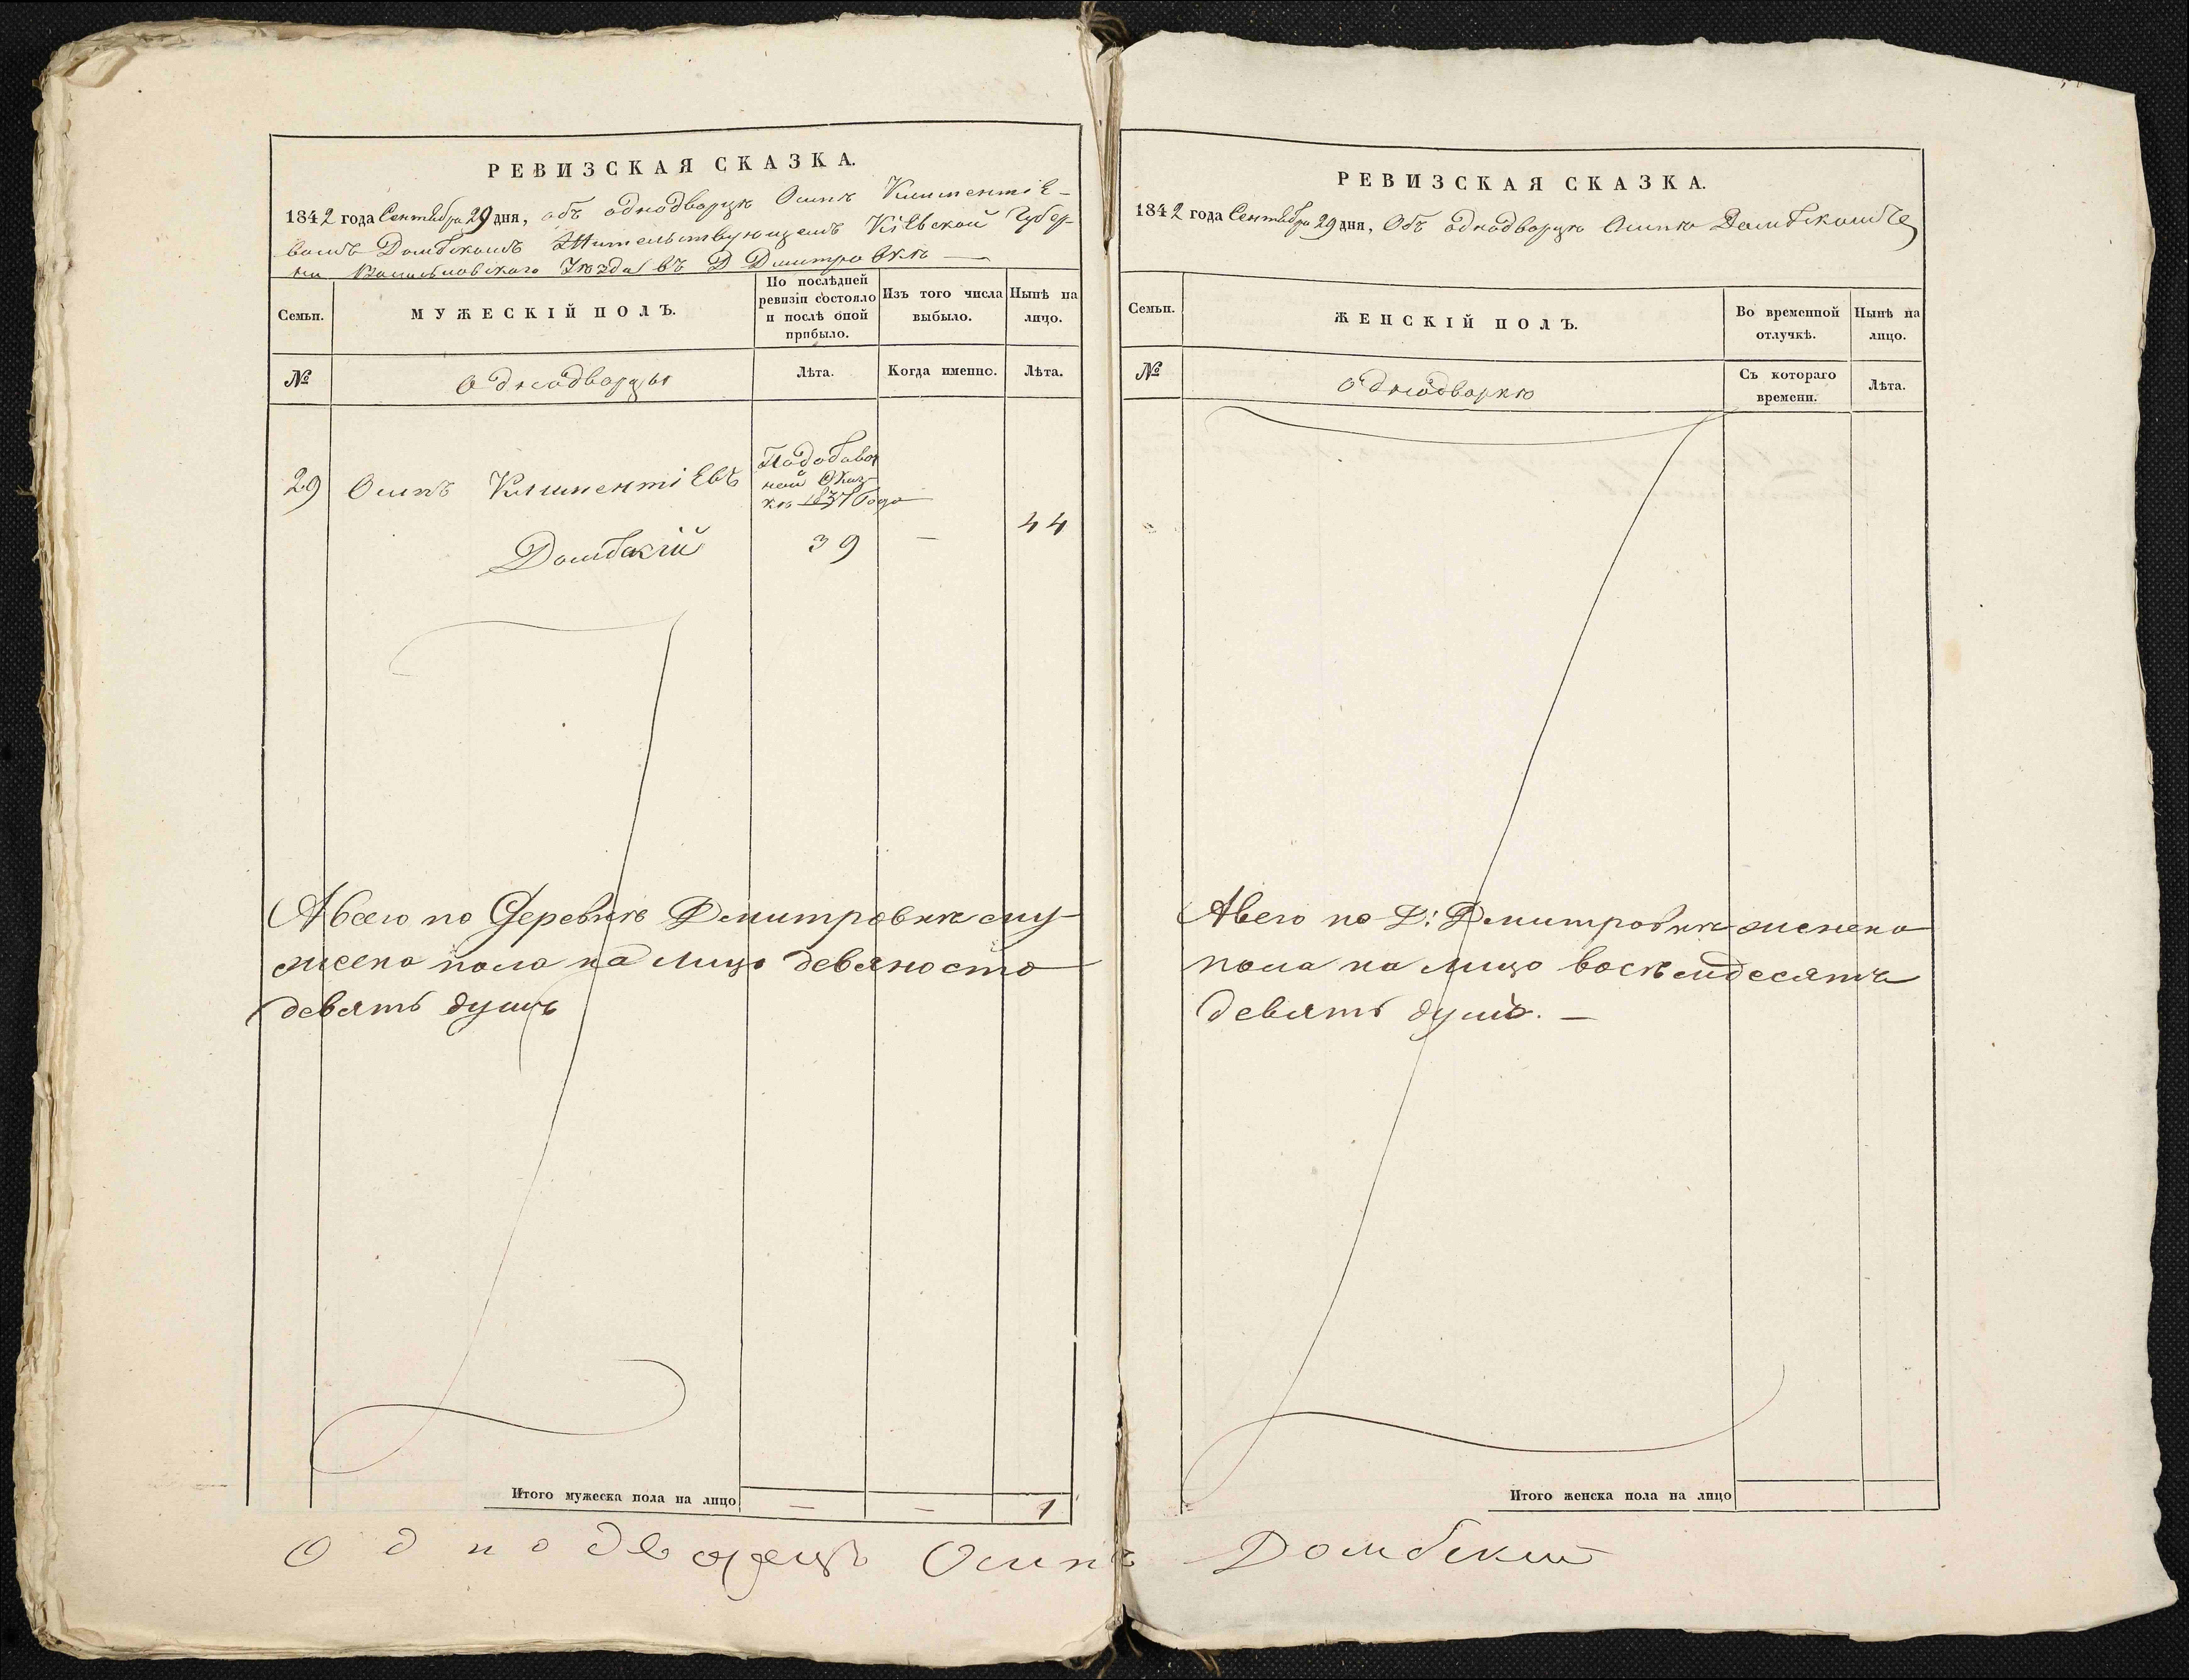 РЕВИЗСКАЯ СКАЗКА.
1842 года Сентября 29 дня, объ однодворцѣ Осипѣ Климентіе-
вомъ Домбскомъ Жительствующемъ Кіевской Губер-
ніи Васильковскаго Уѣзда въ Д Дмитровкѣ —
Семьи.
МУЖЕСКІЙ ПОЛЪ.
По послѣдней
ревизіи состояло
и послѣ оной
прибыло.
Изъ того числа
выбыло.
Нынѣ на
лицо.
№
Однодворцы
Лѣта.
Когда именно.
Лѣта.
29 Осипъ Климентіевъ
Домбскій
По добавоч
ной Сказ
кѣ 1837 Года
39
—
44
А всего по Деревнѣ Дмитровкѣ му
жеска пола на лицо девяносто
девять душъ
Итого мужеска пола на лицо — — 1
РЕВИЗСКАЯ СКАЗКА.
1842 года Сентября 29 дня, Объ однодворцѣ Осипѣ Домбскомъ
Семьи.
ЖЕНСКІЙ ПОЛЪ.
Во временной
отлучкѣ.
Нынѣ на
лицо.
№
Однодворки
Съ котораго
времени.
Лѣта.
А всего по Д: Дмитровкѣ женска
пола на лицо восемдесятъ
девять душъ. —
Итого женска пола на лицо
Однодворецъ Осипъ Домбский